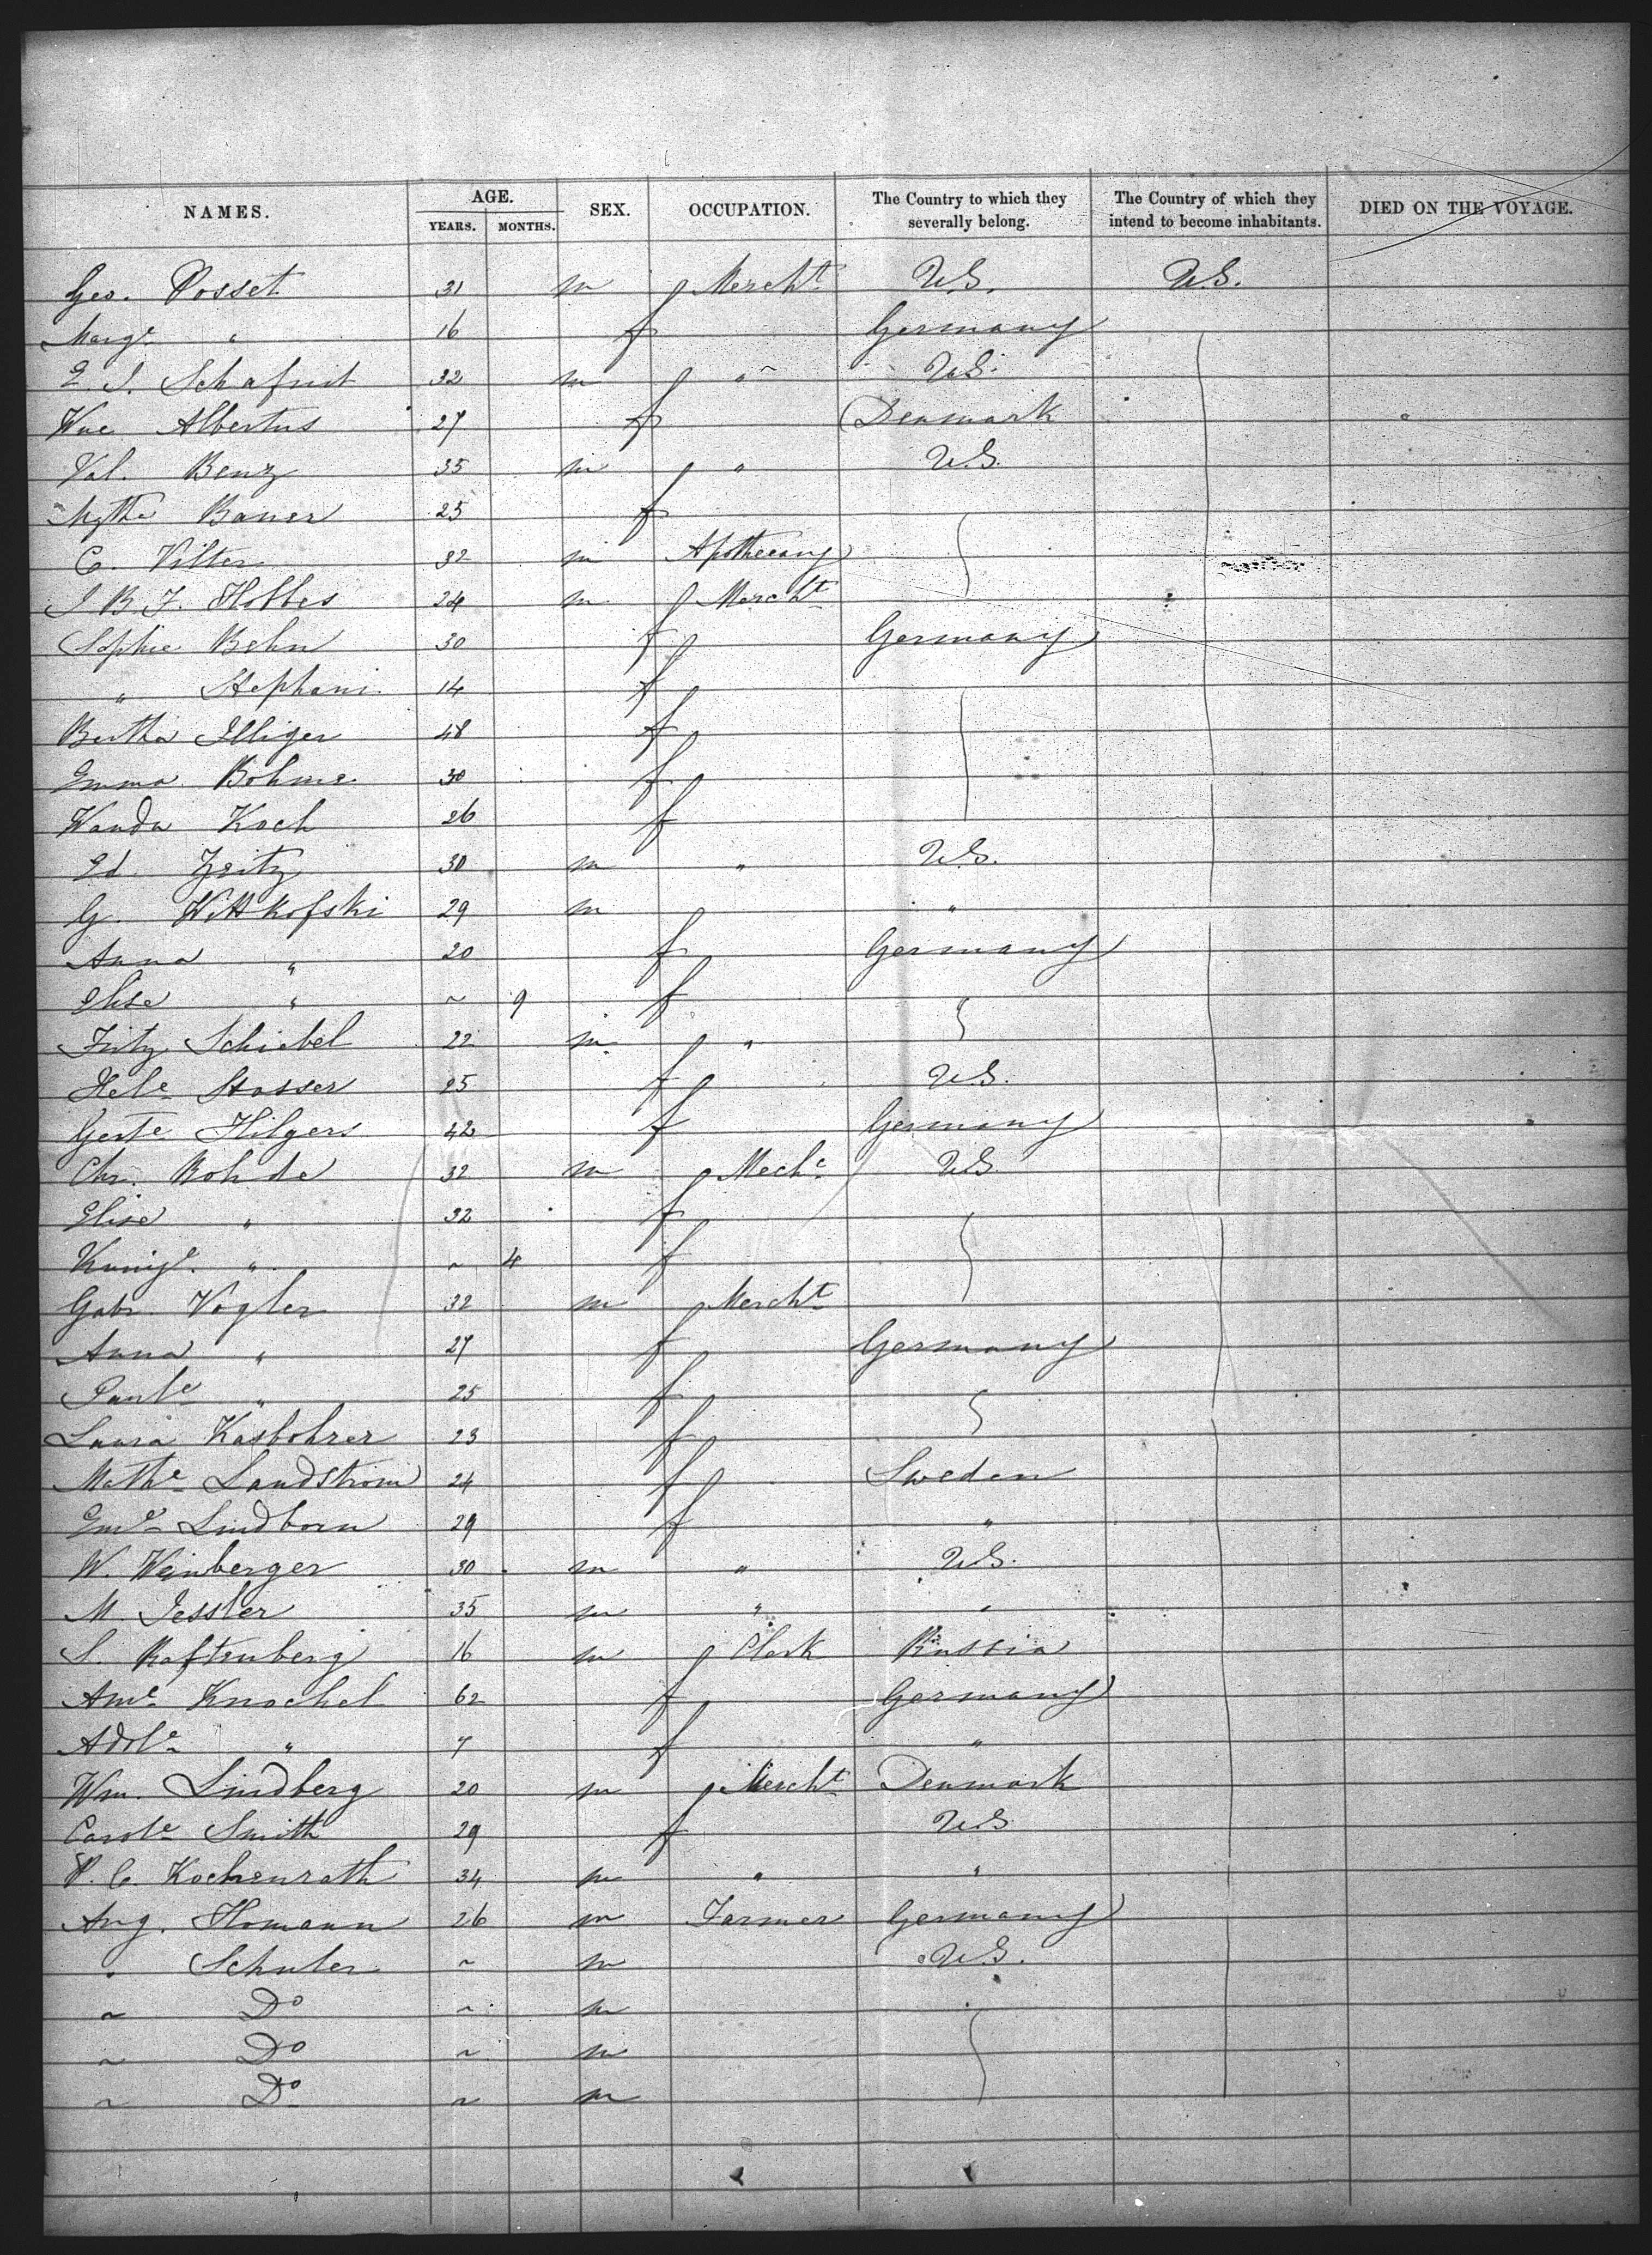 NAMES. AGE. YEARS. MONTHS. SEX. OCCUPATION. The Country to which they severally belong. The Country of which they intend to become inhabitants. DIED ON THE VOYAGE.
Geo. Posset 31 m Mercht U.S. U.S.
Marge " 16 f Germany
32 m " U.S.
Albertus 27 f Denmark
Val. Benz 35 m " U.S.
Bauer 25 f
C. Vilter 32 m Apothecary
J B F. Hobbes 24 m Mercht
Sophie Behn 30 f Germany
" Stephani 14 f
Bertha Illiger 48 f
Emma Bohme 30 f
Wanda Koch 26 f
Ed. Fritz 30 m " U.S.
G. Wittkofski 29 m "
Anna " 20 f Germany
Elise " ~ 9 f "
Fritz Schiebel 22 m "
Hele Stosser 25 f U.S.
Gerte Hilgers 42 f Germany
Chr. Rohde 32 m Mechc U.S.
Elise " 32 f
Kunige " ~ 4 f
Gabr. Vogler 32 m Mercht
Anna " 27 f Germany
Paule " 25 f
Laura Kasbohrer 23 f
Mathe Landstrom 24 f Sweden
Eme Lindborn 29 f "
W. Weinberger 30 m " U.S.
M. Jessler 35 m " "
S. Raftenberg 16 m Clerk Russia
Ame Knochel 62 f Germany
Adole " 7 f "
Wm. Lindberg 20 m Mercht Denmark
Carole Smith 29 f U.S.
P. C. Kochenrath 34 m " "
Aug. Homann 26 m Farmer Germany
" Schuler ~ m U.S.
~ Do ~ m
~ Do ~ m
~ Do ~ m